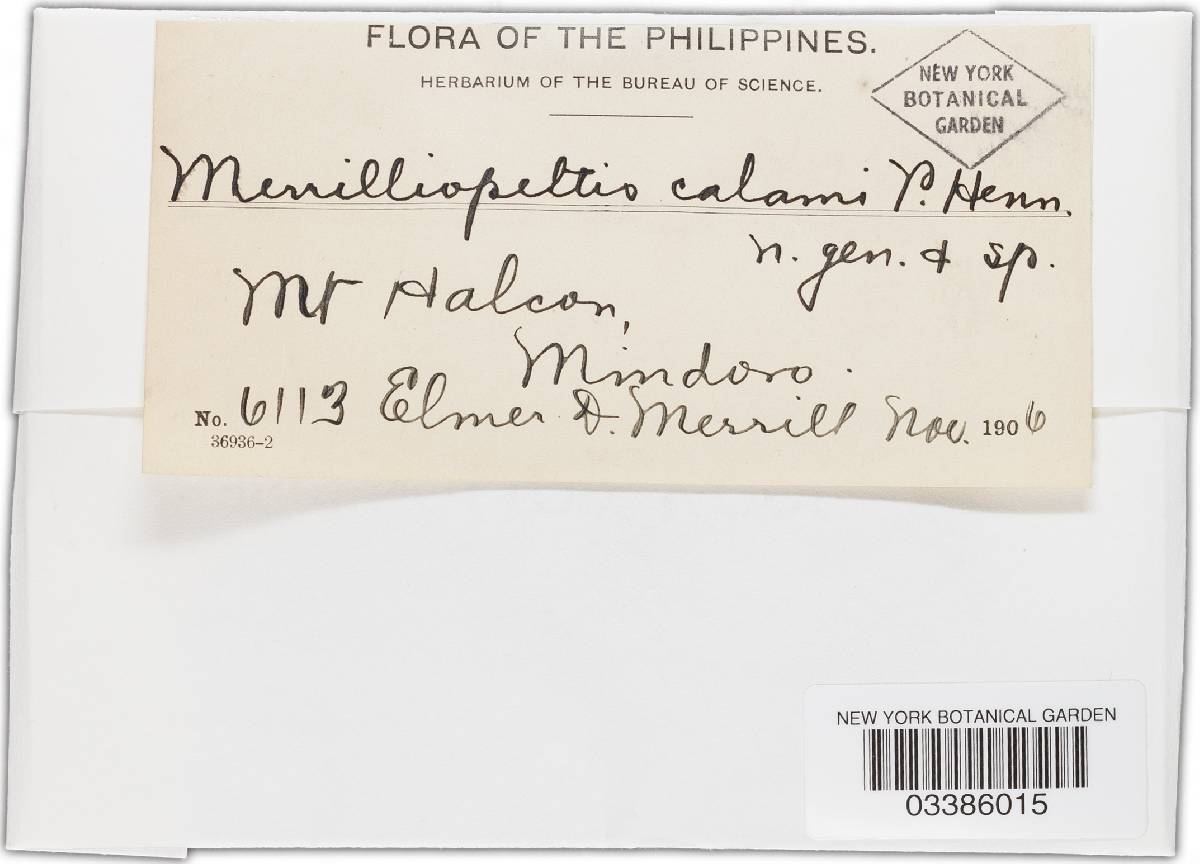 FLORA OF THE PHILIPPINES.
HERBARIUM OF THE BUREAU OF SCIENCE.
NEW YORK
BOTANICAL
GARDEN
Merrilliopeltis calami P. Henn.
n. gen. & sp.
Mt Halcon,
Mindoro.
No. 6113 Elmer D. Merrill Nov. 1906
36936-2
NEW YORK BOTANICAL GARDEN
03386015